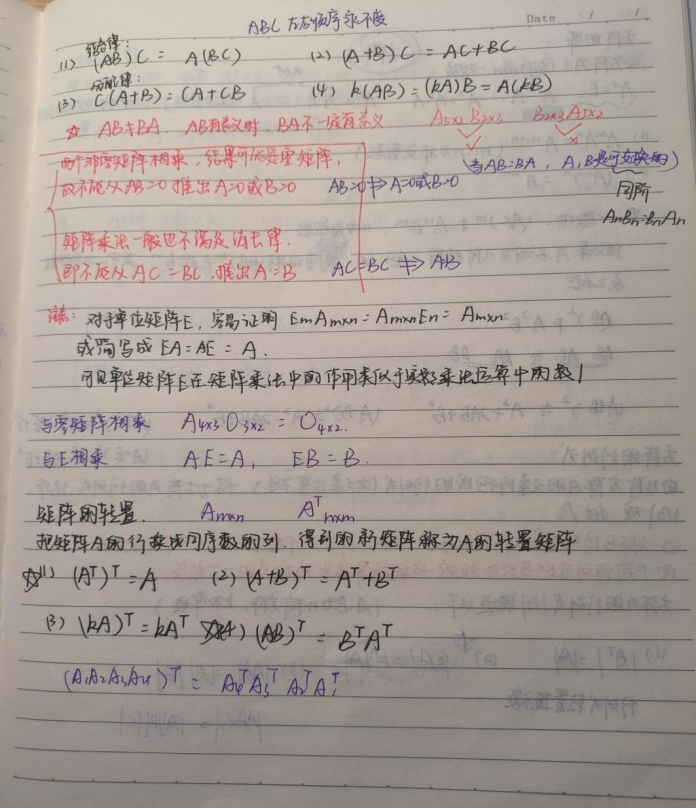 ABC 左右顺序永不变
Date / /
结合律:
(1) (AB)C = A(BC) (2) (A+B)C = AC+BC
分配律:
(3) C(A+B)=CA+CB (4) k(AB)=(kA)B=A(kB)
☆ AB≠BA. AB有意义时,BA不一定有意义 A₅ₓ₂ B₂ₓ₃ B₂ₓ₃A₅ₓ₂
✓ ×
两个非零矩阵相乘,结果可能是零矩阵, 当AB=BA,A,B是可交换的)
故不能从AB=0推出A=0或B=0 AB=0⇏A=0或B=0 同阶
AnBn=BnAn
矩阵乘法一般也不满足消去律.
即不能从AC=BC,推出A=B AC=BC⇏A=B
对于单位矩阵E,容易证明 EmAm×n=Am×nEn=Am×n
或简写成 EA=AE=A.
可见单位矩阵E在矩阵乘法中的作用类似于实数乘法运算中的数1
与零矩阵相乘 A₄ₓ₃O₃ₓ₂=O₄ₓ₂.
与E相乘 AE=A, EB=B.
矩阵的转置. Am×n Aᵀn×m
把矩阵A的行换成同序数的列.得到的新矩阵称为A的转置矩阵
☆(1) (Aᵀ)ᵀ=A (2) (A+B)ᵀ=Aᵀ+Bᵀ
(3) (kA)ᵀ=kAᵀ ☆(4) (AB)ᵀ=BᵀAᵀ
(A₁A₂A₃A₄)ᵀ=A₄ᵀA₃ᵀA₂ᵀA₁ᵀ